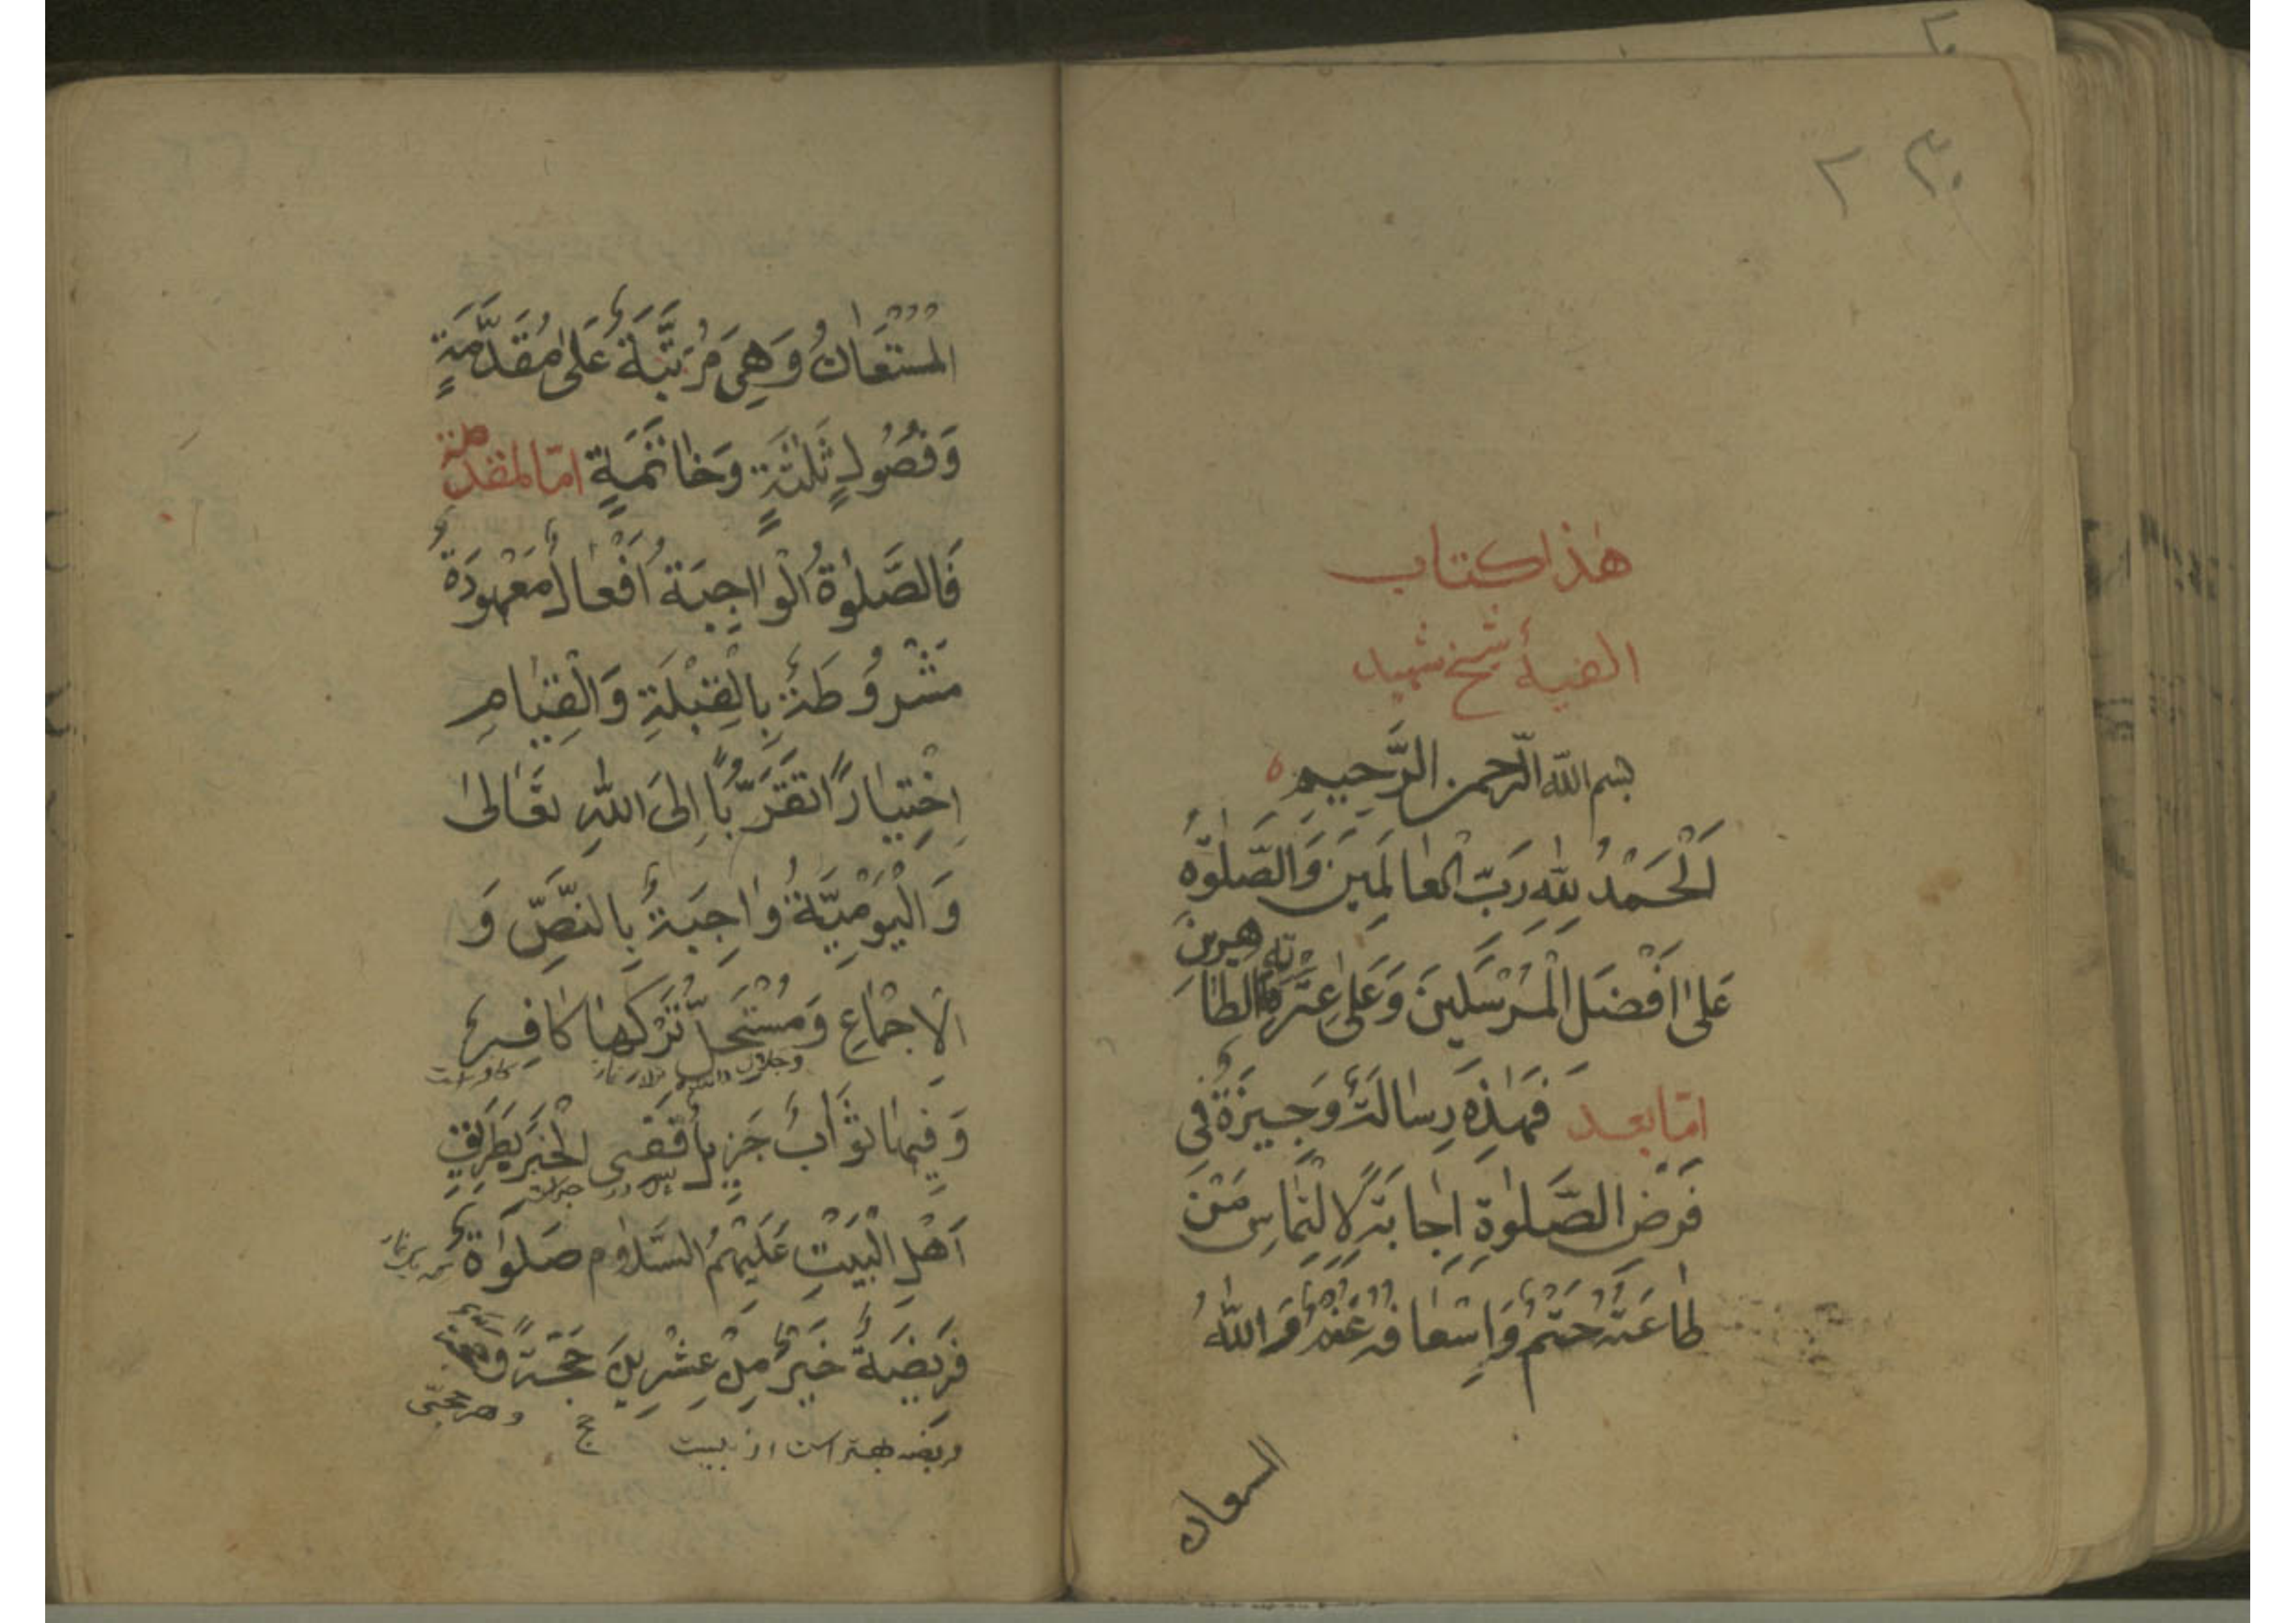 هٰذا كتاب
الفیهٔ شیخ شهید
بسم الله الرّحمن الرَّحِيمِ
اَلْحَمْدُ لِلّٰهِ رَبِّ الْعٰالَمِينَ وَالصَّلٰوةُ
عَلٰى اَفْضَلِ الْمُرْسَلِينَ وَعَلٰى عِتْرَتِهِ الطّٰاهِرِينَ
امّا بعد فَهٰذِهِ رِسٰالَةٌ وَجِيزَةٌ فِى
فَرْضِ الصَّلٰوةِ اِجٰابَةً لِالْتِمٰاسِ مَنْ
طٰاعَتُهُ حَتْمٌ وَاِسْعٰافُهُ غُنْمٌ وَاللّٰهُ
المستعان
الْمُسْتَعٰانُ وَهِىَ مُرَتَّبَةٌ عَلىٰ مُقَدَّمَةٍ
وَفُصُولٍ ثَلٰثَةٍ وَخٰاتَمَةٍ امّا المقدمة
فَالصَّلٰوةُ الْوٰاجِبَةُ اَفْعٰالٌ مَعْهُودَةٌ
مَشْرُوطَةٌ بِالْقِبْلَةِ وَالْقِيٰامِ
اِخْتِيٰارًا تَقَرُّبًا اِلَى اللّٰهِ تَعٰالىٰ
وَالْيَوْمِيَّةُ وٰاجِبَةٌ بِالنَّصِّ وَ
الْاِجْمٰاعِ وَمُسْتَحِلُّ تَرْكِهٰا كٰافِرٌ
وَفِيهٰا ثَوٰابٌ جَزِيلٌ فَفِى الْخَبَرِ بِطَرِيقِ
اَهْلِ الْبَيْتِ عَلَيْهِمُ السَّلٰام صَلٰوةٌ
فَرِيضَةٌ خَيْرٌ مِنْ عِشْرِينَ حَجَّةً وَحَجَّةٌ
فریضه بهتر است از بیست حج و هر حجّی